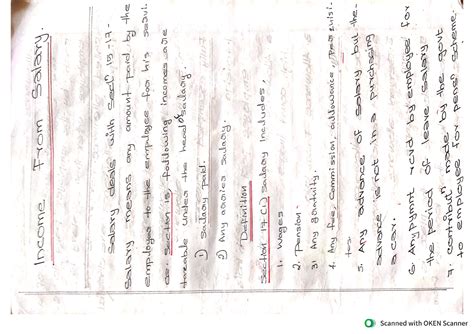 Income From Salary.
Salary deals with Secⁿ 15 - 17
Salary means any amount paid by the
employer to the employee for his
section 15, following incomes are
taxable under the head of salary.
1) Salary paid.
2) Any arries salary.
Definition
Section 17 (1) salary includes,
1. Wages
2. Pension
3) Any gratuity.
4. Any fee, Commission allowance,
5. Any advance of salary but the
advance is not in a purchasing
a car.
6. Any pymnt rcvd by employee for
the period of leave salary
7. contributⁿ made by the govt
for pensⁿ scheme.
Scanned with OKEN Scanner